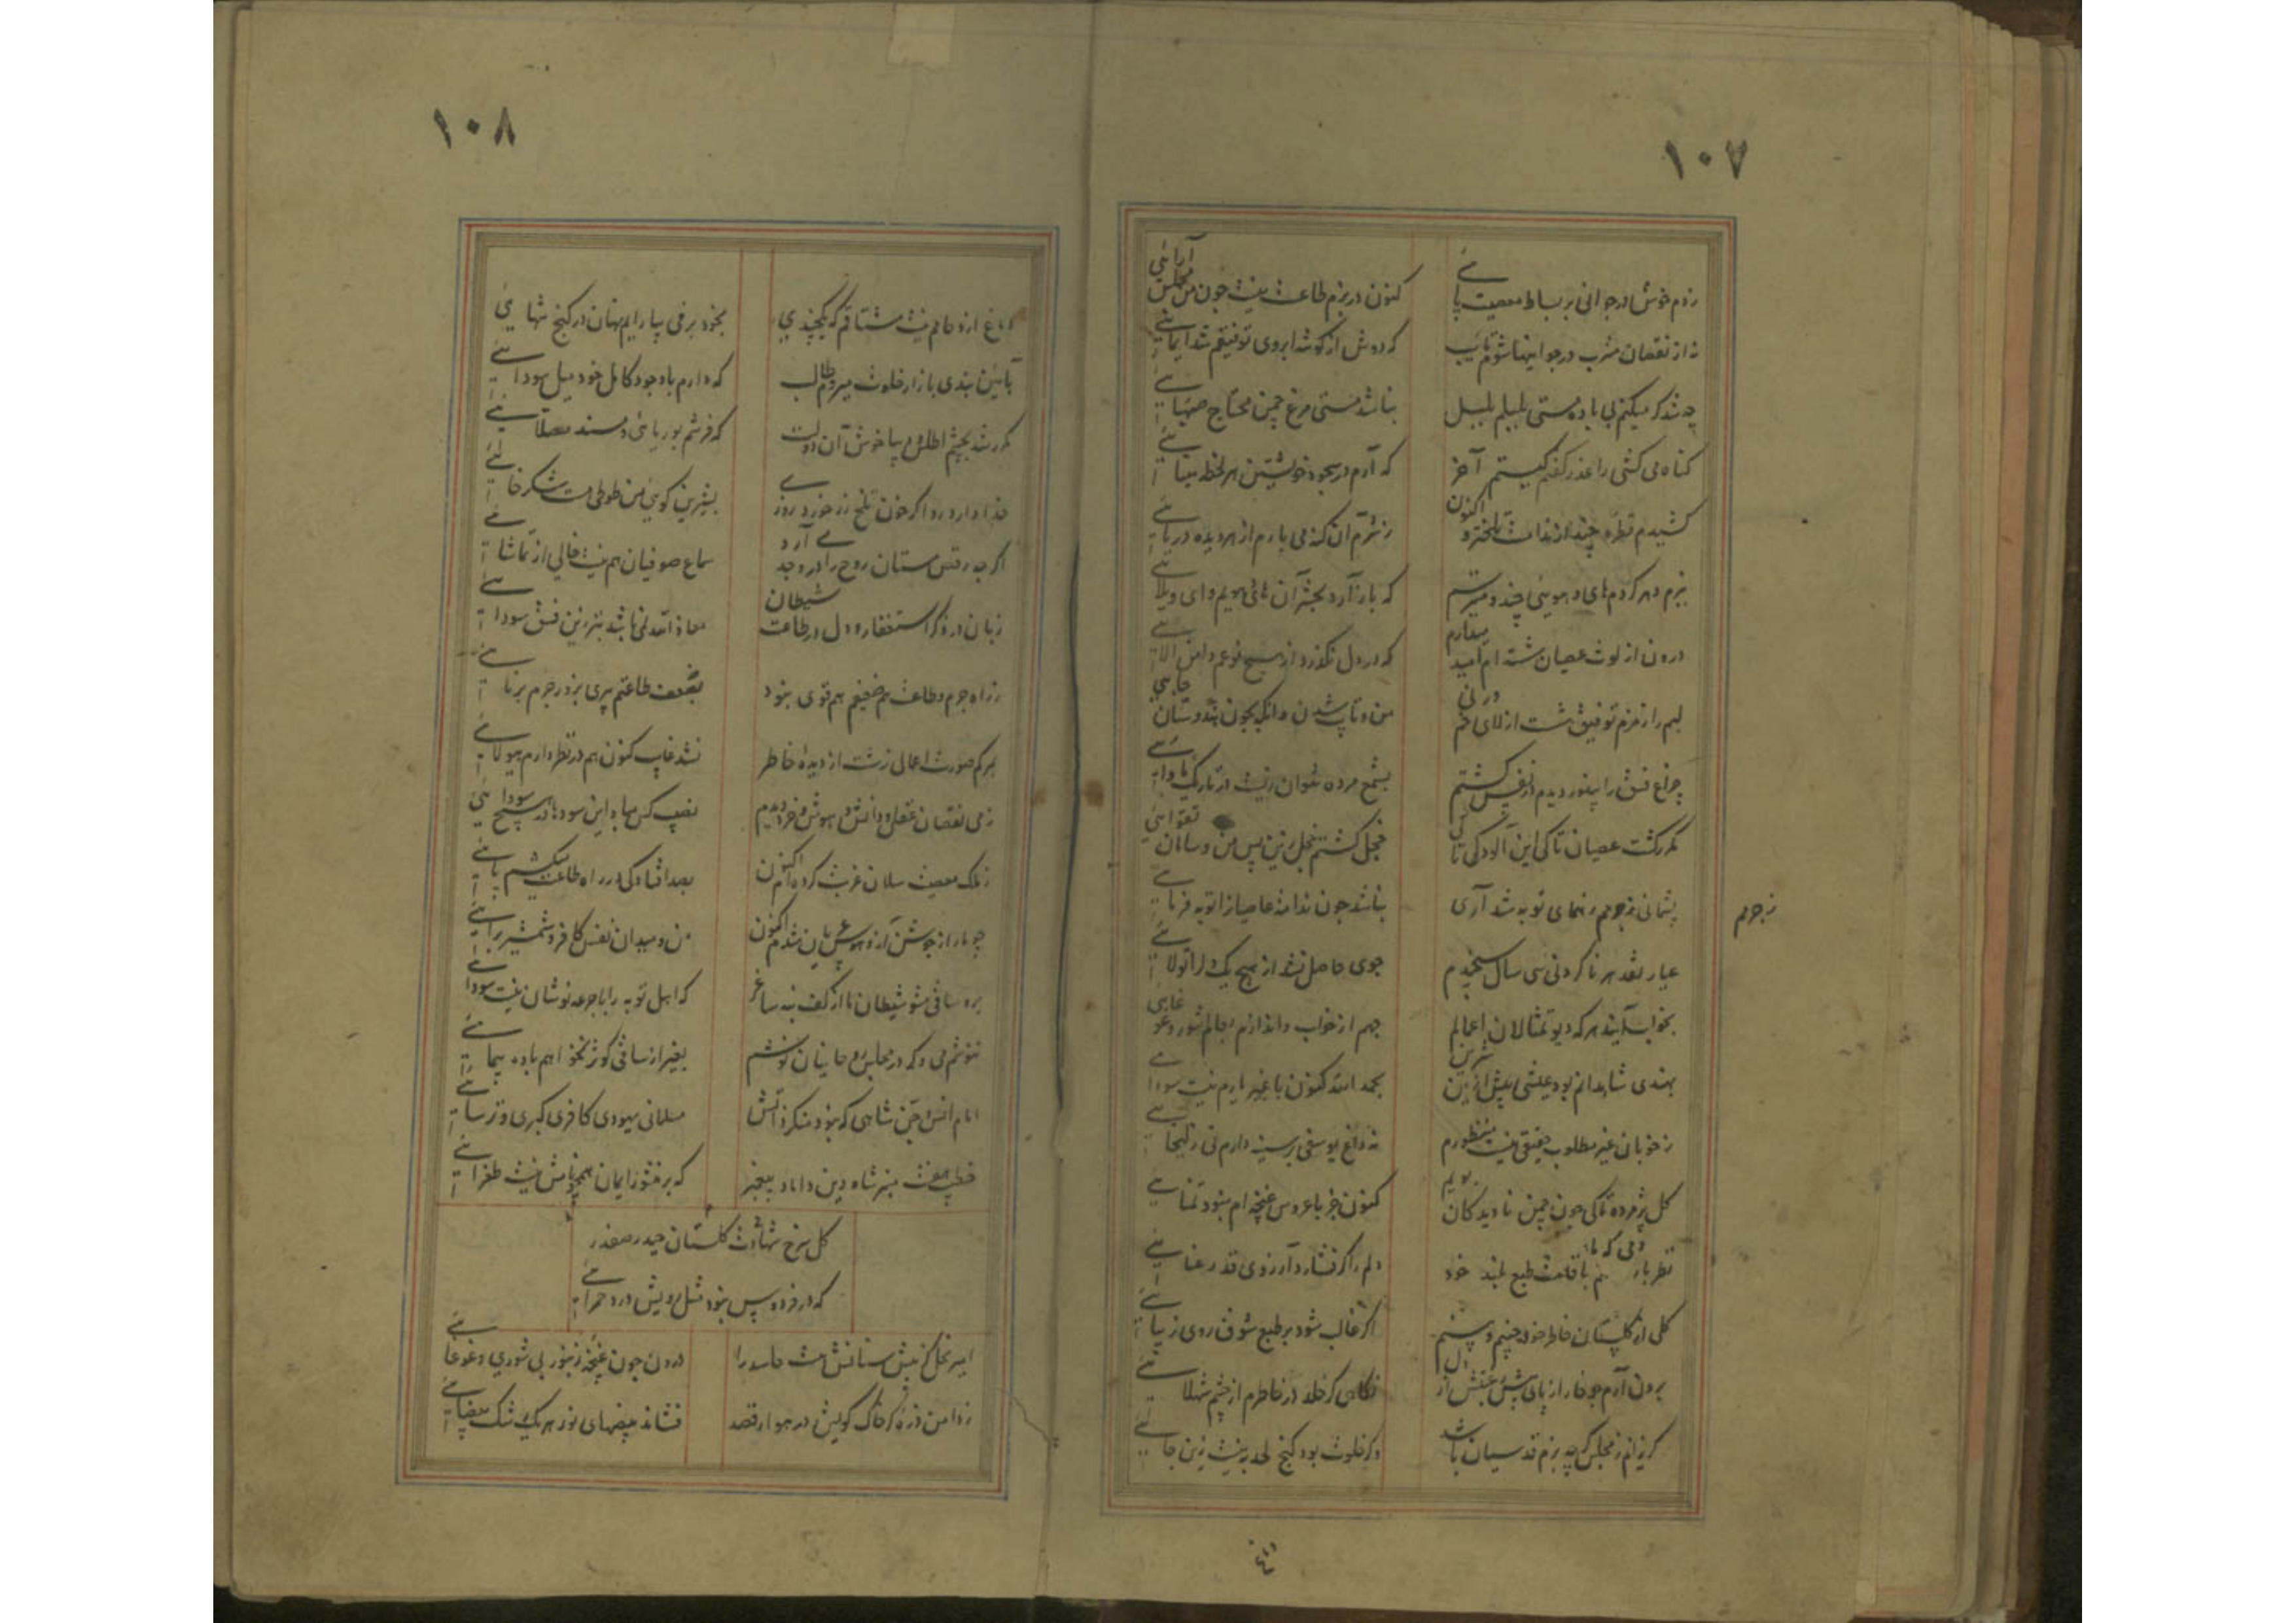 ۱۰۷
زدم خوش در جوانی بر بساط معصیت پائے
کنون در بزم طاعت نیست چون من مجلس آرائی
نه از نقصان مشرب در جوانیها شوم تایب
که دوش از گوشه ابروی توفیقم شد ایمائے
چه شد گر میکنم بی باده مستی بلبلم بلبل
نباشد مستی مرغ چمن محتاج صهبائے
گناه می کشی را عذر گفتم کیستم آخر
که آرم در سجود خویشتن هر لحظه مینائے
کشیدم قطره چند از ندامت تلختر و اکنون
ز شرم آن گنه می بارم از هر دیده دریائے
ببزم دهر کردم های و هوئی چند و میترسم
که باز آرد بحشر آن های هویم وای ویلائے
درون از لوث عصیان شسته ام امید میدارم
که در دل نگذرد از هیچ نوعم دامن آلائے
لبم را زمزم توفیق شست از لای خم
من و تایب شدن وانگه بچون هندوستان جائی
چراغ فسق را بینور دیدم از نفس کشتم
بشمع مرده نتوان زیست در تاریک مأوائے
مکرر گشت عصیان تا کی این آلودگی تا کی
خجل گشتم خجل زین پس من و سامان تقوائی
پشیمانی ز جرمم رهنمای توبه شد آری
نباشد چون ندامت عاصیانرا توبه فرمائے
ز جرمم
عیار نقد هر ناکردنی سی سال سنجیدم
جوی حاصل نشد از هیچ یک دل را تولائے
بخواب آیند هر گه دیو تمثالان اعمالم
جهم از خواب و اندازم بعالم شور و غوغائی
بهندی شاهدانم بود عیشی پیش ازین شیرین
بحمد الله کنون با غیر یارم نیست سودائے
ز خوبان غیر مطلوب حقیقی نیست منظورم
نه داغ یوسفی بر سینه دارم نی زلیخائے
گل پژمرده تا کی چون چمن نادیدگان بویم
کنون جز با عروس غنچه ام نبود تمنائے
نظر بازم با قامت طبع بلند خود
دلم را گر فشارد آرزوی قد رعنائے
گلی از گلستان خاطر خود چینم و بینم
اگر غالب شود بر طبع شوق روی زیبائے
برون آرم چو خار از پای
نگاهی گر خلد در خاطرم از چشم شهلائے
گریزانم ز مجلس گر چه بزم قدسیان باشد
و گر خلوت بود کنج لحد به نیست زین جائے
۱۰۸
دماغ ازدحامم نیست مشتاقم که یکچندی
بخود بر فی بیارایم نهان در کنج تنهائی
بآئین بندی بازار خلوت میروم طالب
که دارم با وجود کامل خود میل سودائے
مکرر شد بچشم اطلس و دیبا خوش آن دولت
که فرشم بوریا باشد و مسند مصلائے
غذا دارد رو اگر خون تلخ زر خورد روزے
بشیرین گوئی من طوطی مست شکرخائے
اگر چه رقص مستان روح را در وجد مے آرد
سماع صوفیان هم نیست خالی از تماشائے
زبان در ذکر استغفار و دل در طاعت شیطان
معاذ الله نمی باشد بتر زین فسق سودائے
ز راه جرم و طاعت هم ضعیفم هم قوی نبود
بضعف طاعتم پیری بزور جرم برنائے
بمرگم صورت اعمال زشت از دیدهٔ خاطر
نشد غایب کنون هم در نظر دارم هیولائے
زهی نقصان عقل و دانش و هوش و خرد دیدم
نصیب کس مباد این سودها در هیچ سودائی
ز ملک معصیت سامان غربت کرده ام اکنون
بصد افتادگی در راه طاعت میکشم پائے
چو مار از جوشن آز و هوس عریان شدم اکنون
من و میدان نفس کافر و شمشیر برائے
برو ساقی مشو شیطان ما از کف بنه ساغر
که اهل توبه را با جرعه نوشان نیست سودائے
ننوشم می و گر در مجلس روحانیان نوشم
بغیر از ساقی کوثر نخواهم باده پیمائے
امام انس و جن شاهی که نبود منکر ذاتش
مسلمانی یهودی کافری گبری و ترسائے
خطیب هفت منبر شاه دین داماد پیغمبر
که بر منشور ایمان همچو نامش نیست طغرائے
گل سرخ شهادت گلستان حیدر صفدر
که در فردوس نبود مثل رویش ورد حمرائے
امیر نحل کز نیش سنانش هست حاسد را
درون چون غنچه زنبور بی شوری و غوغائے
ز دامن ذره گر خاک کویش در هوا رقصد
فشاند بیضهای نور هر یک رشک بیضائے